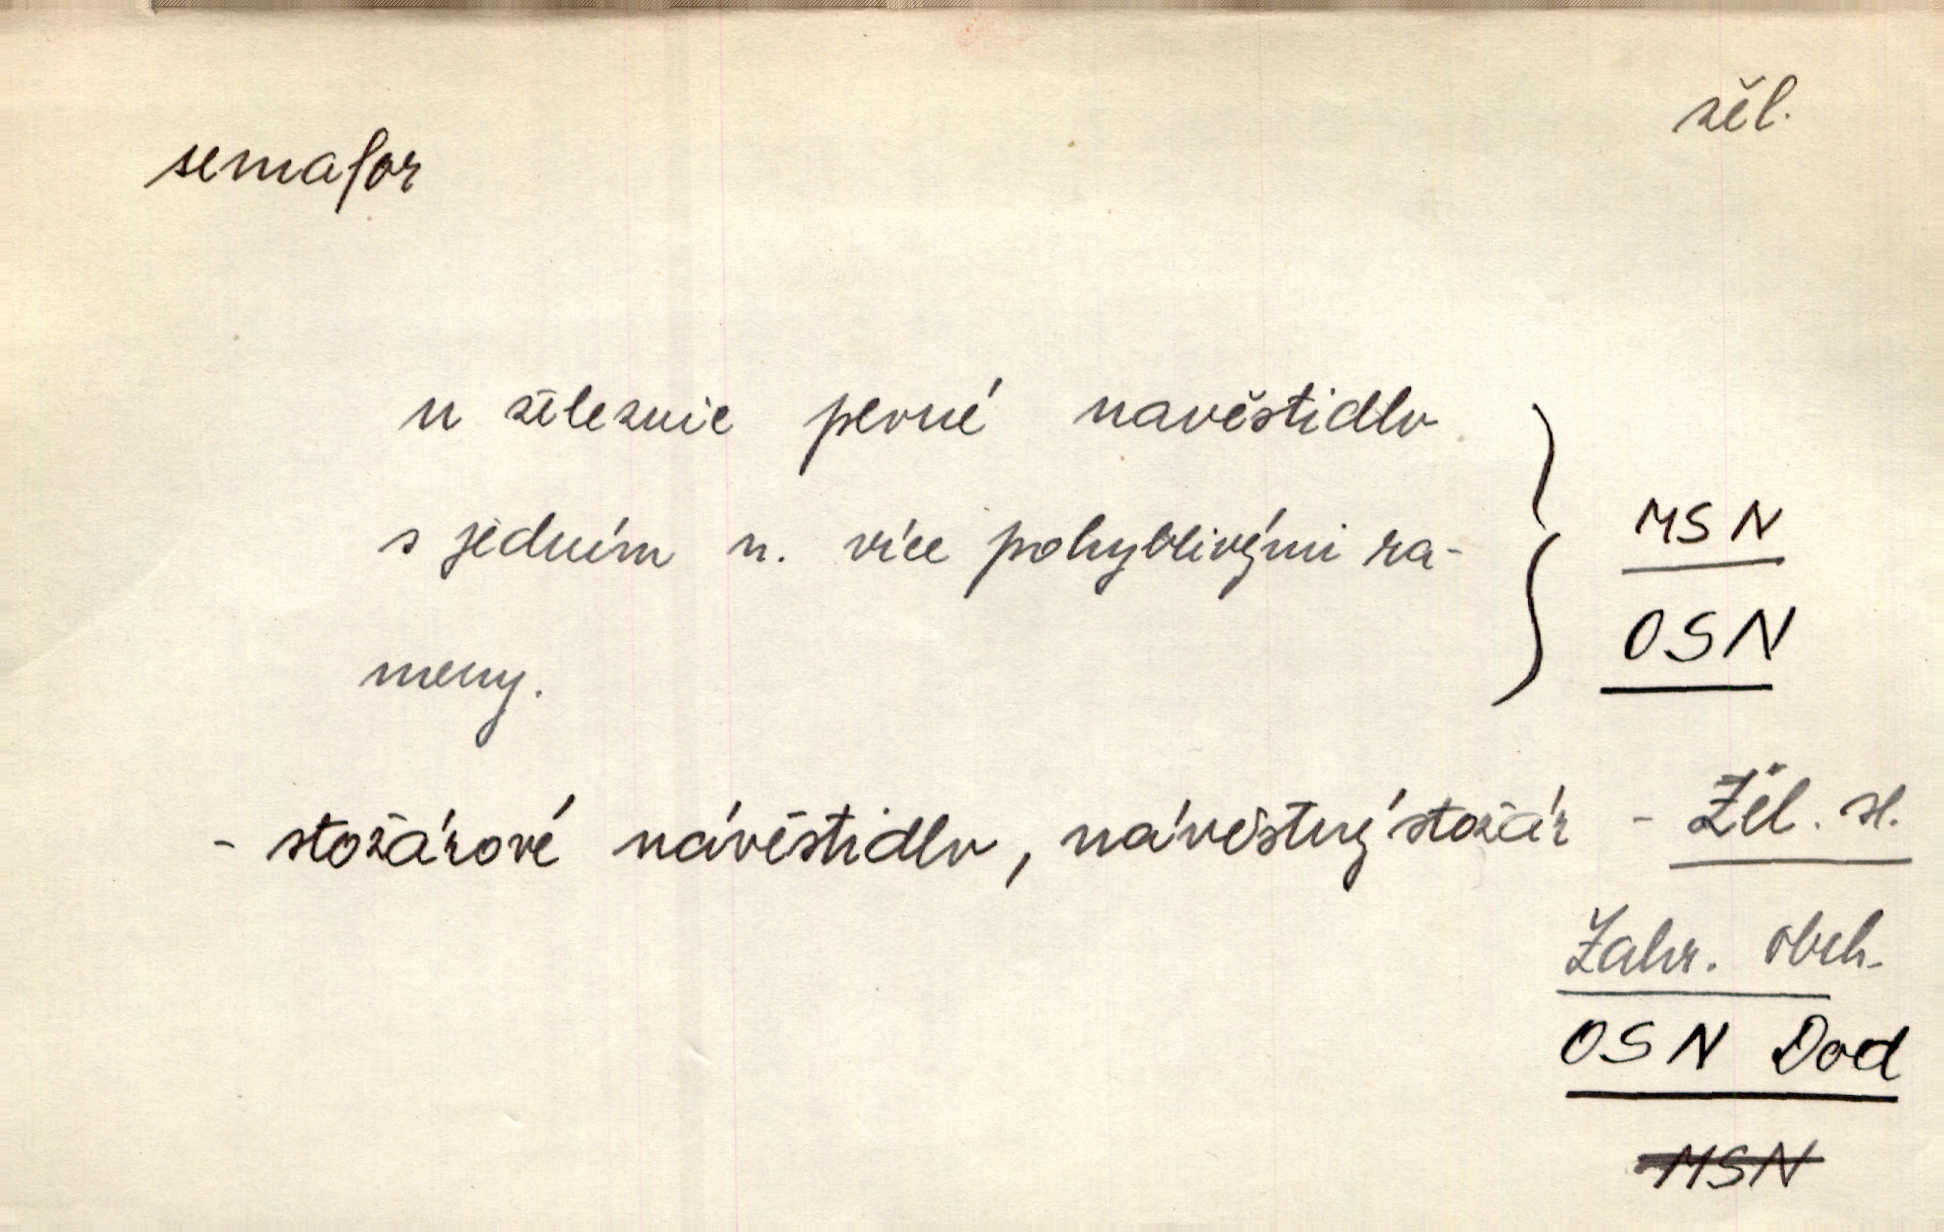 žel.
semafor
u železnic pevné navěstidlo
s jedním n. více pohyblivými ra-
meny.
MSN
OSN
- stožárové návěstidlo, návěstný stožár - Žel. sl.
Zahr. obch.
OSN Dod
MSN